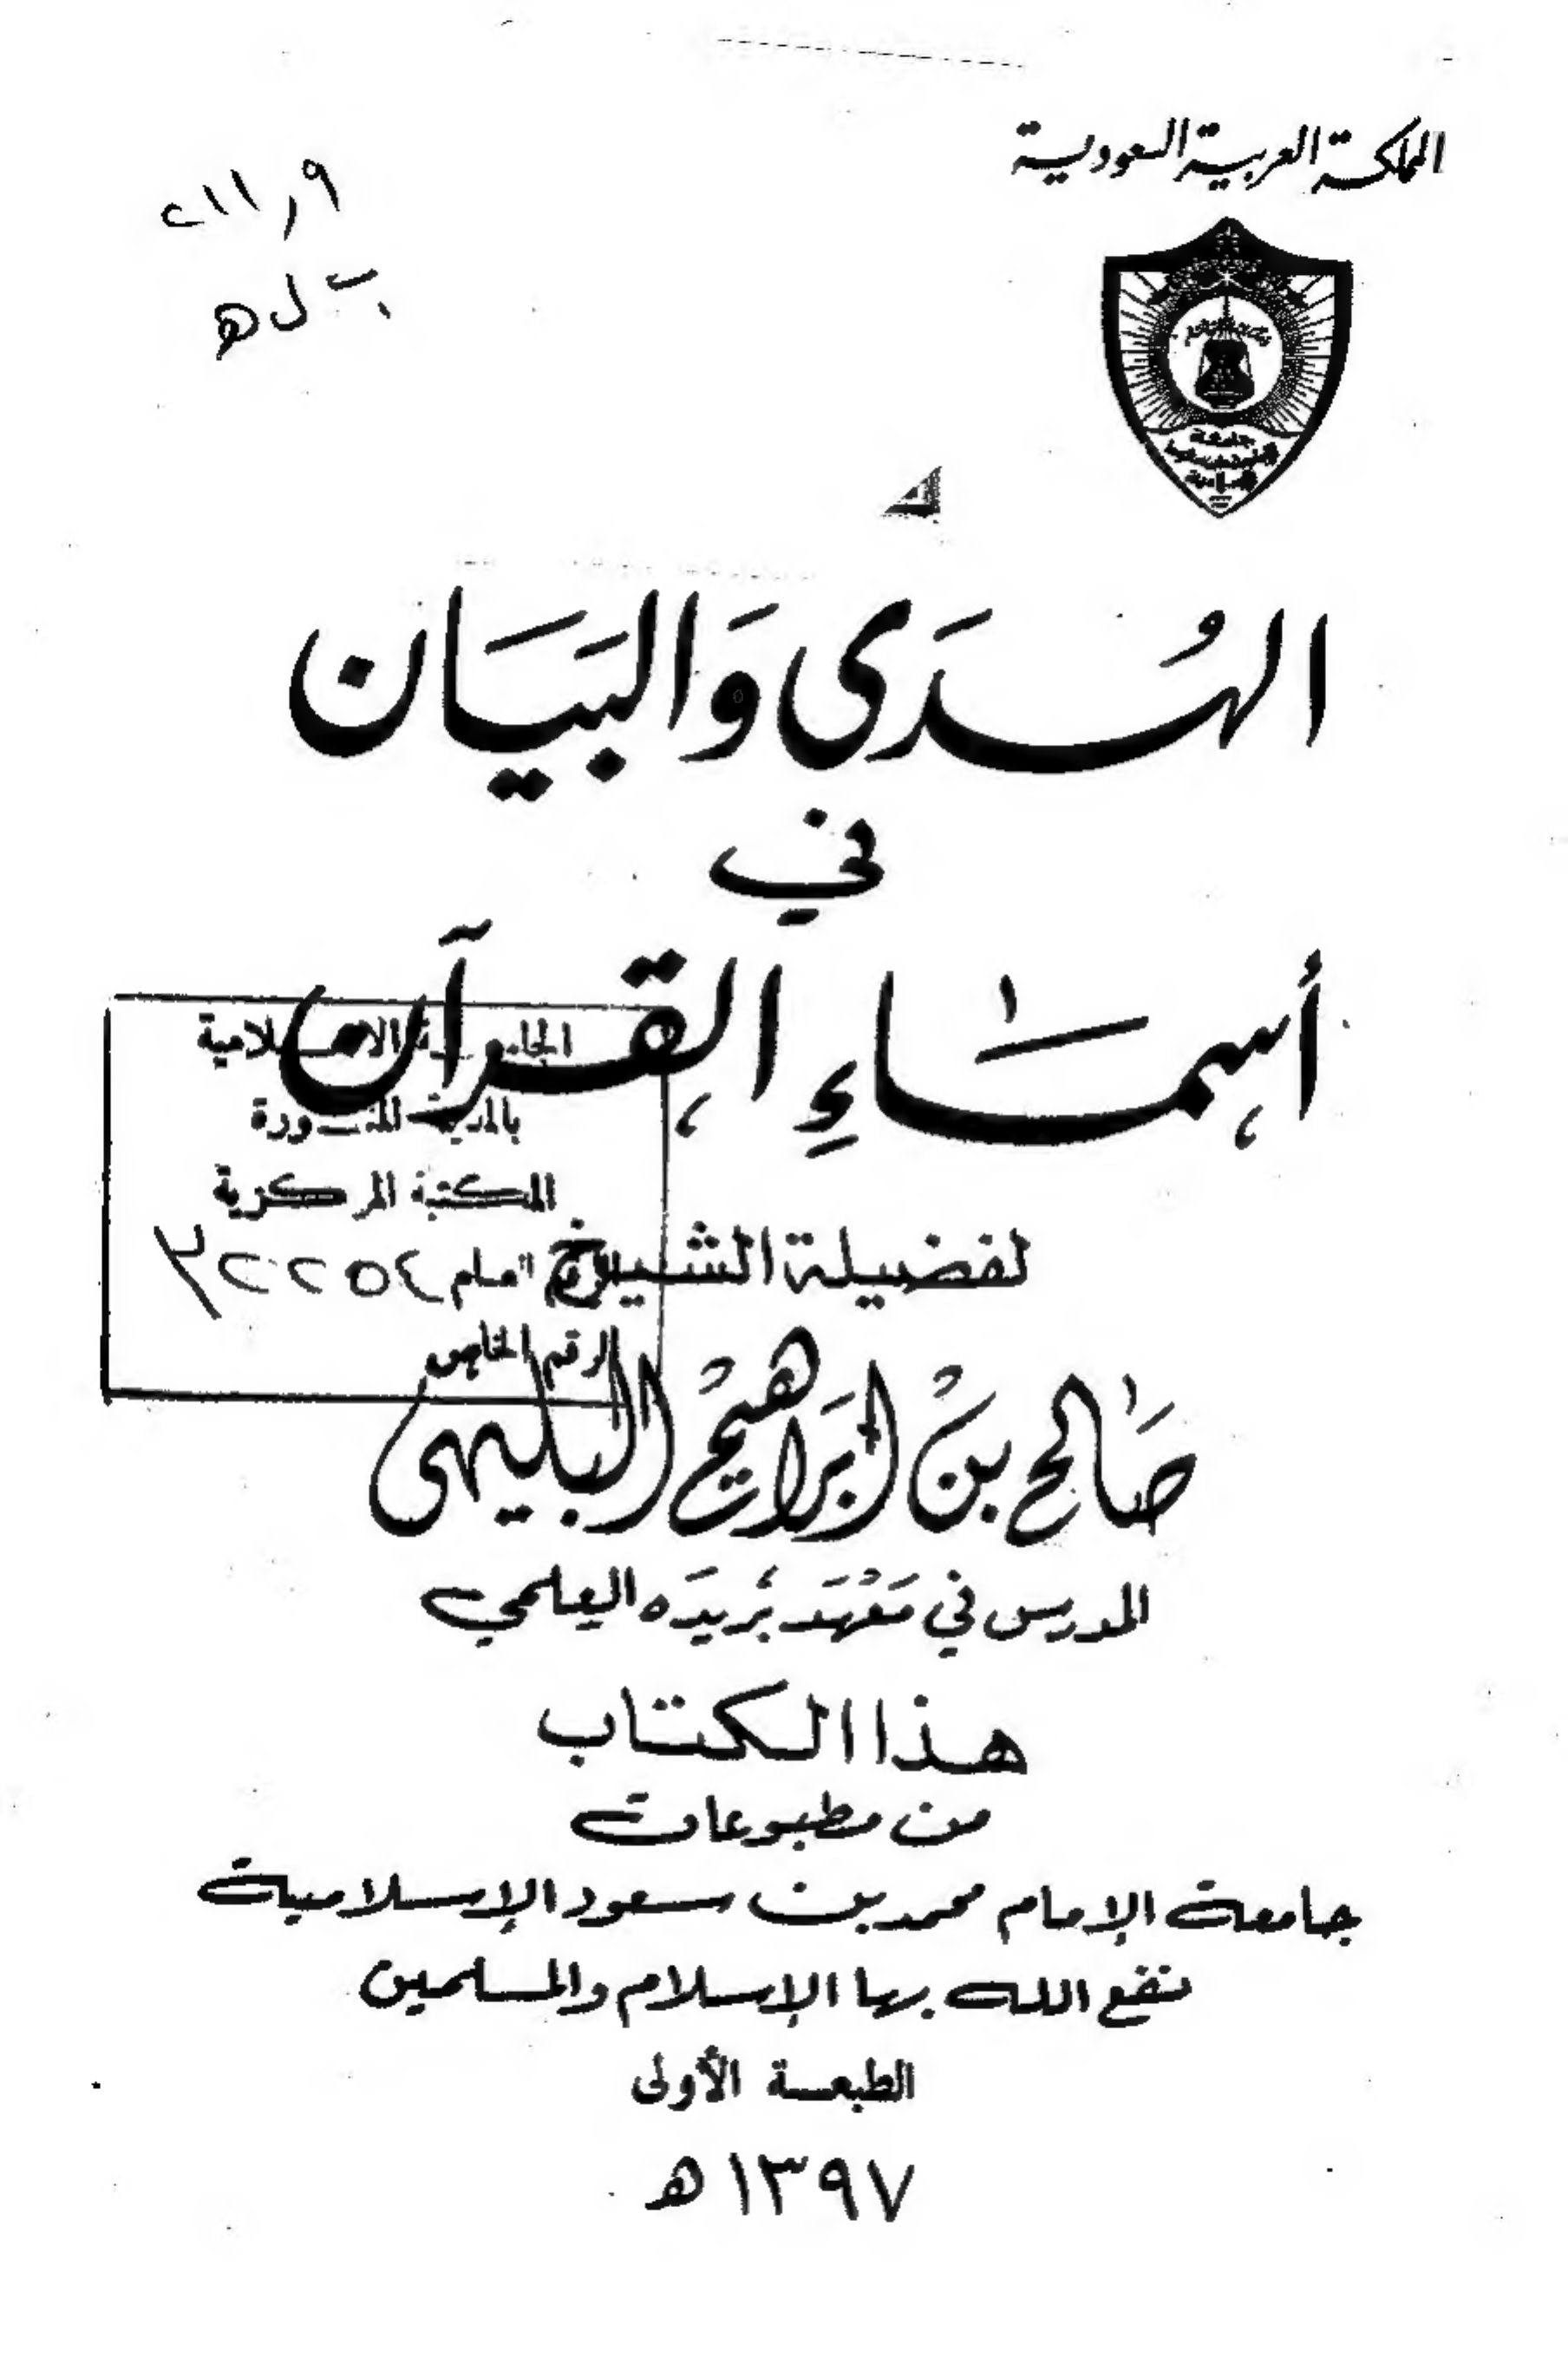 المملكة العربية السعودية
٢١١٫٩
ب ل ه
جامعة
الهُدَى وَالبَيَان
في
أَسْمَاءِ القرآن
الجامعة الاسلامية
بالمدينة المنورة
المكتبة المركزية
الرقم العام ٣٢٢٥٤
الرقم الخاص
لفضيلة الشيخ
صَالح بنْ ابرَاهيمْ البليهى
المدرس في مَعْهَد بُريدَه العِلمي
هذا الكتاب
من مطبوعات
جامعة الإمام محمد بن سعود الإسلامية
نفع الله بها الإسلام والمسلمين
الطبعة الأولى
١٣٩٧ ه